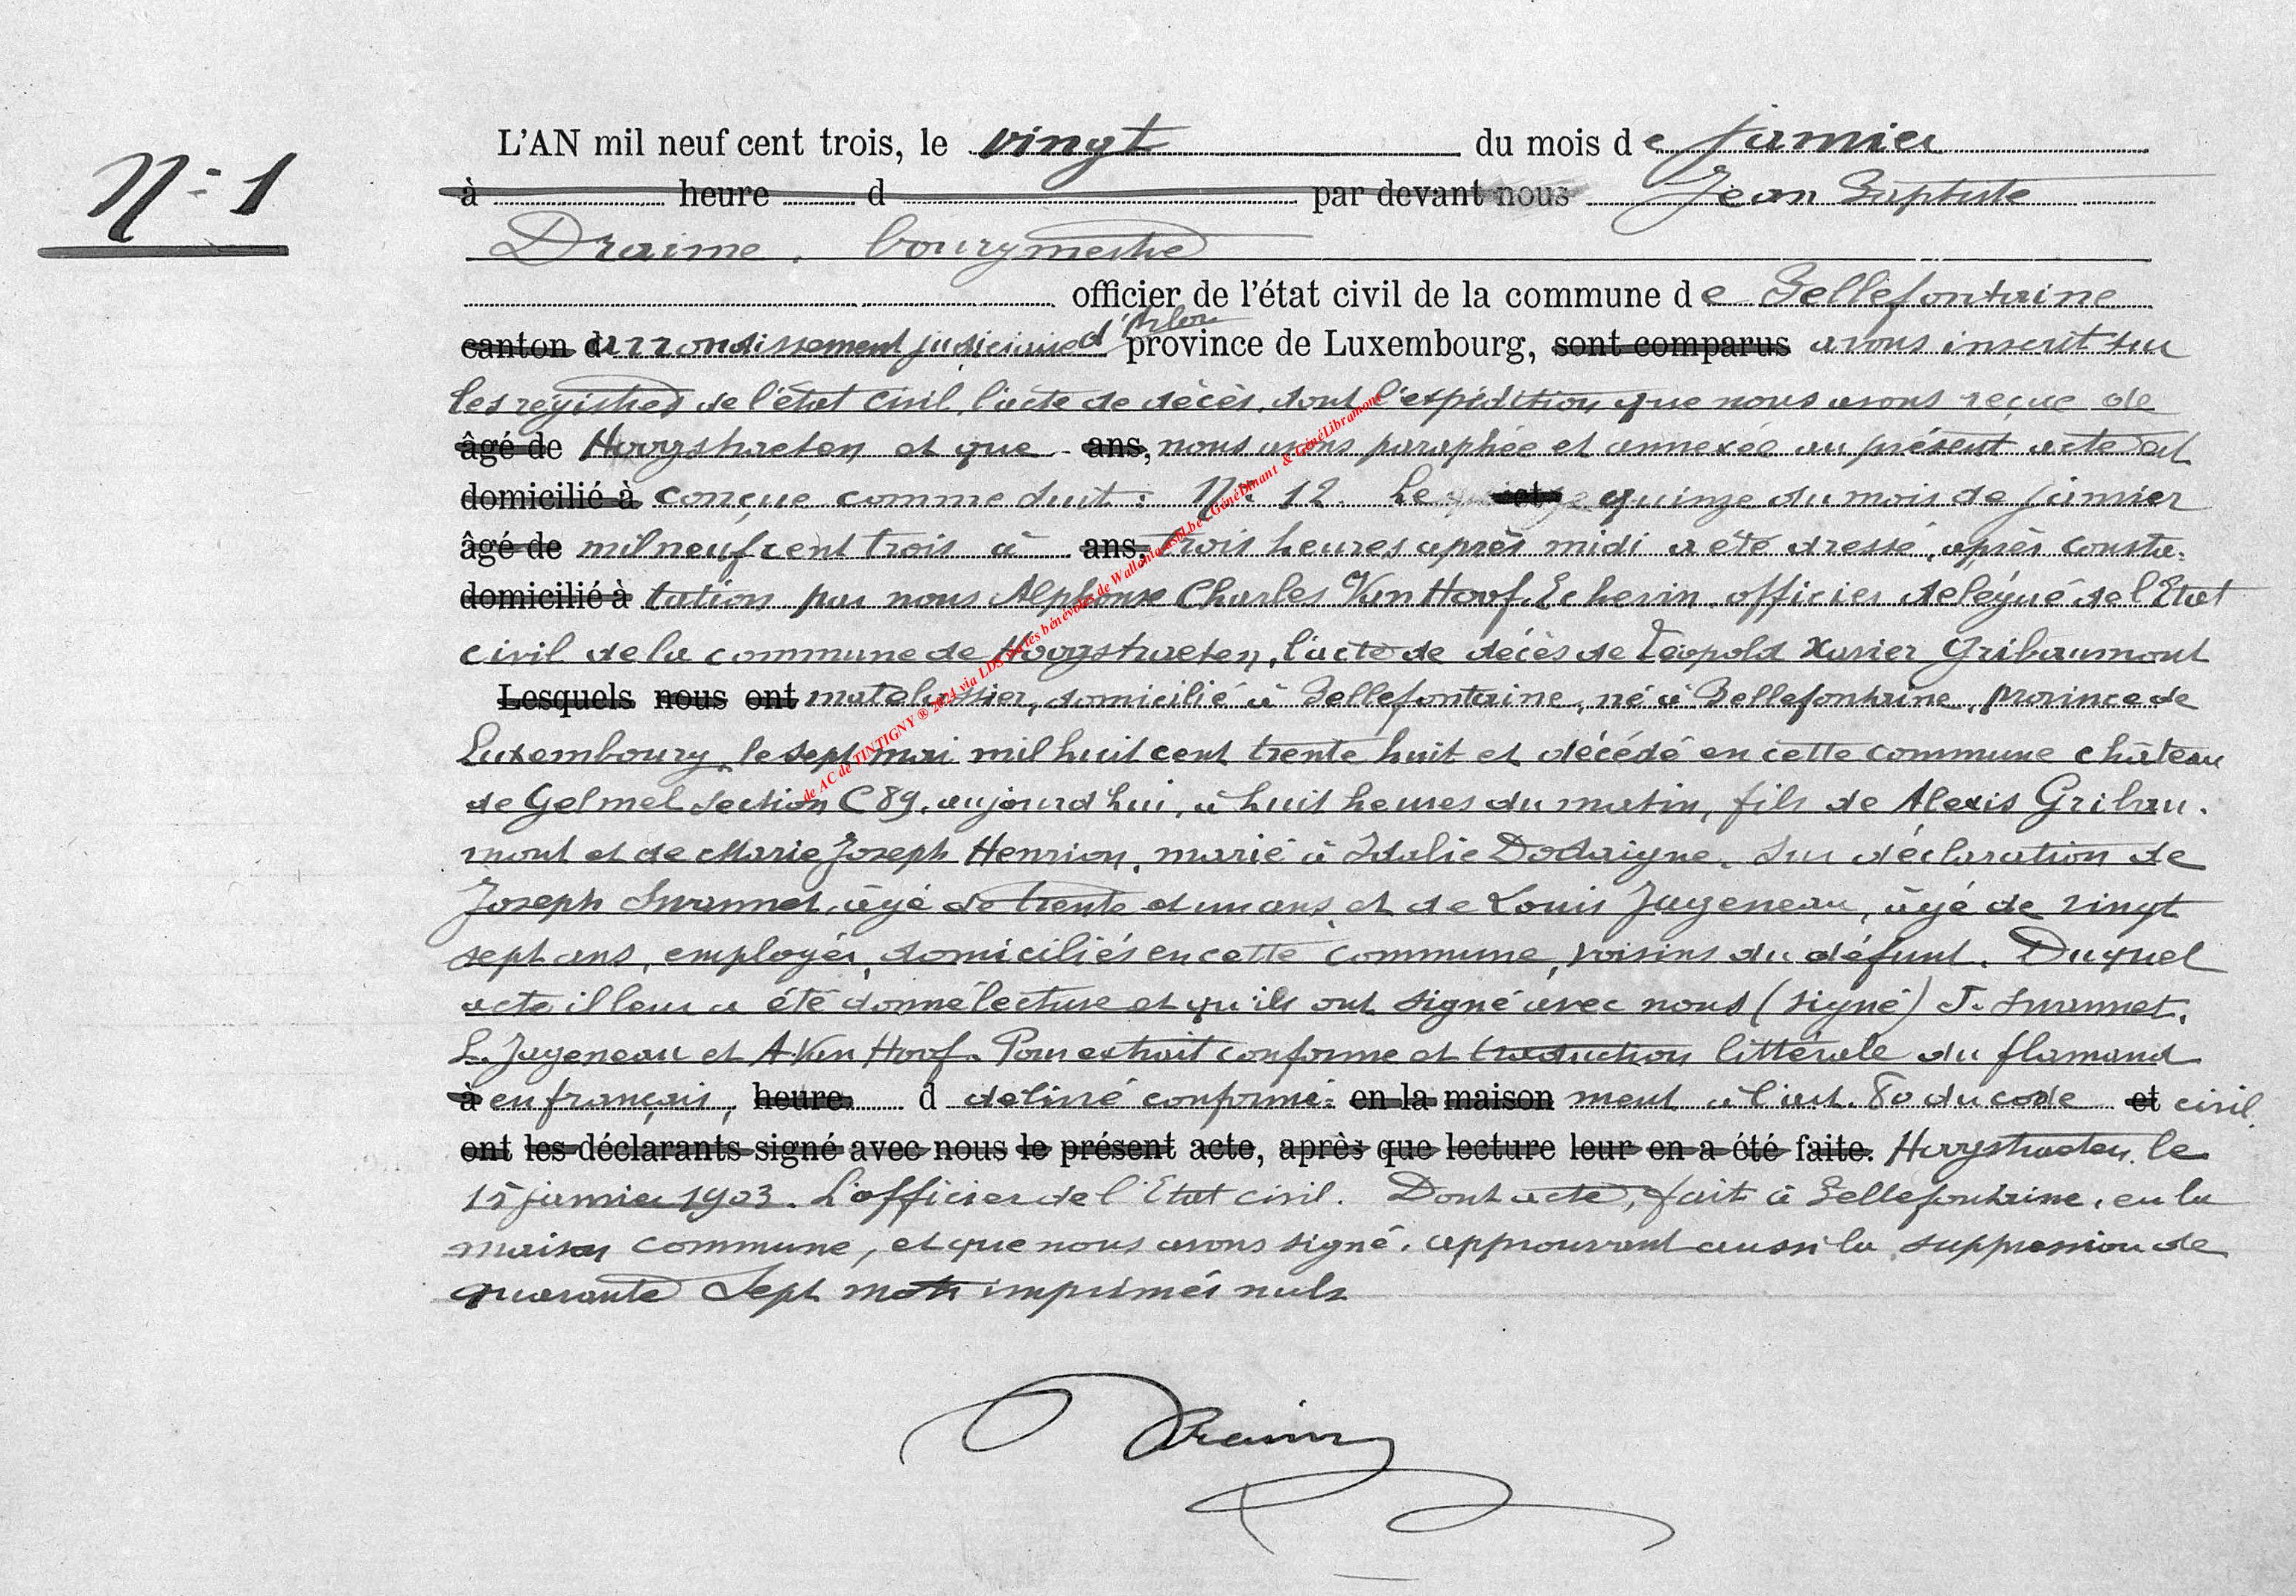 N° 1
L'AN mil neuf cent trois, le vingt du mois de janvier
à heure d par devant nous Jean Baptiste
Draime, bourgmestre
officier de l'état civil de la commune de Bellefontaine
canton d arrondissement judiciaire d'Arlon province de Luxembourg, sont comparus avons inscrit sur
les registres de l'état civil, l'acte de décès, dont l'expédition que nous avons reçue de
âgé de Hoogstraeten et que ans, nous avons paraphée et annexée au présent acte est
domicilié à conçue comme suit : N° 12. Le et quinze du mois de janvier
âgé de mil neuf cent trois à ans, trois heures après midi a été dressé, après consta-
domicilié à tation par nous Alphonse Charles Van Hoof, Echevin, officier délégué de l'Etat
civil de la commune de Hoogstraeten, l'acte de décès de Léopold Xavier Gribaumont
Lesquels nous ont matelassier, domicilié à Bellefontaine, né à Bellefontaine, province de
Luxembourg, le sept mai mil huit cent trente huit et décédé en cette commune château
de Gelmel section C 89, aujourd'hui, à huit heures du matin, fils de Alexis Gribau-
mont et de Marie Joseph Henrion, marié à Idalie Dodaigne. Sur déclaration de
Joseph Swannet, âgé de trente et un ans et de Louis Jageneau, âgé de vingt
sept ans, employés, domiciliés en cette commune, voisins du défunt. Duquel
acte il leur a été donné lecture et qu'ils ont signé avec nous (signé) J. Swannet,
L. Jageneau et A. Van Hoof. Pour extrait conforme et traduction littérale du flamand
à en français, heure d délivré conformé- en la maison ment à l'art. 80 du code et civil.
ont les déclarants signé avec nous le présent acte, après que lecture leur en a été faite. Hoogstraeten, le
15 janvier 1903. L'officier de l'Etat civil. Dont acte, fait à Bellefontaine, en la
maison commune, et que nous avons signé, approuvant aussi la suppression de
quarante sept mots imprimés nuls
Draime
de AC de TINTIGNY ® 2024 via LDS via les bénévoles de Wallonia-asbl.be - GénéDinant & GénéLibramont